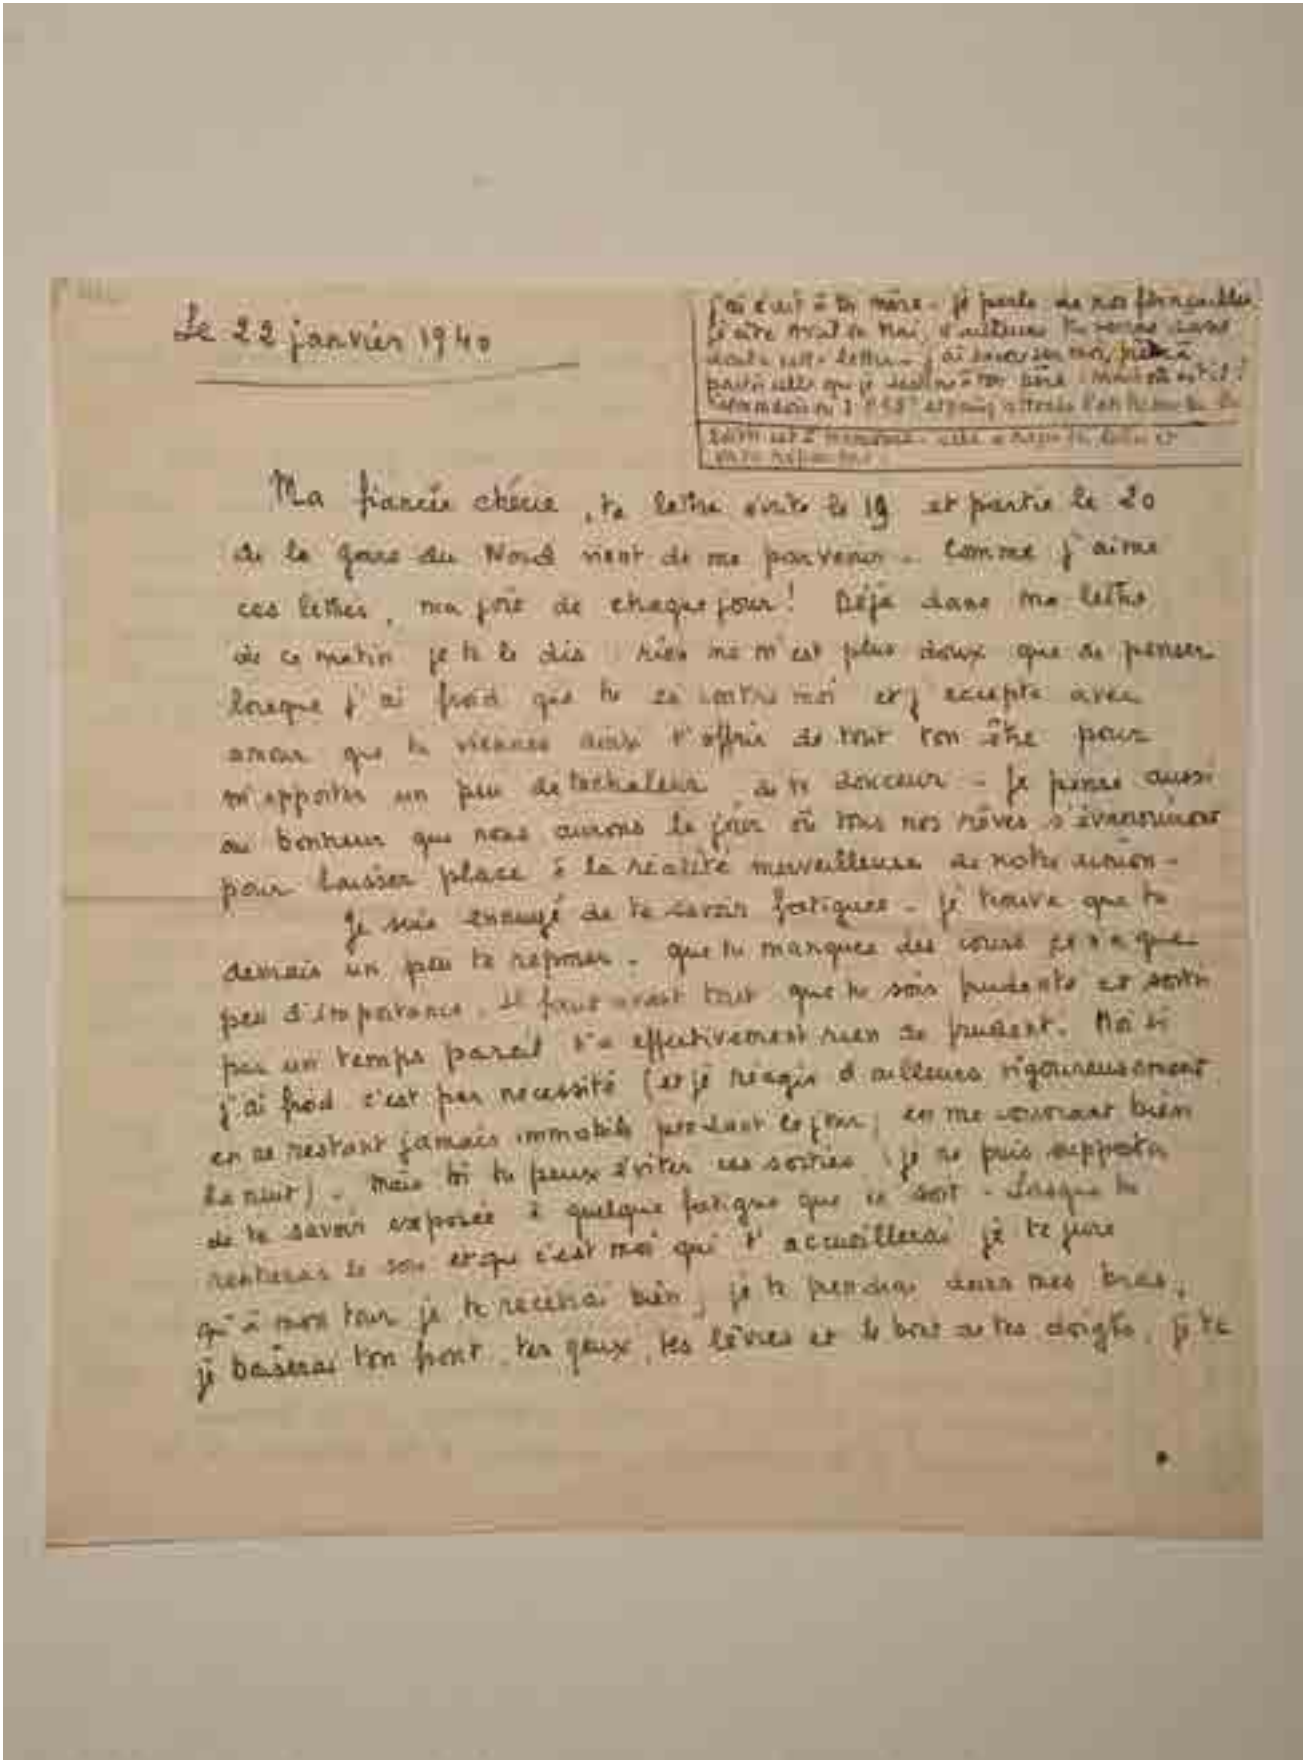 Le 22 janvier 1940
j'ai écrit à ta mère - je parle de nos fiançailles
Ma fiancée chérie, ta lettre écrite le 19 et partie le 20
de la gare du Nord vient de me parvenir. Comme j'aime
ces lettres, ma joie de chaque jour! Déjà dans ma lettre
de ce matin je te le dis : rien ne m'est plus doux que de penser
lorsque j'ai froid que tu es contre moi et j'accepte avec
amour que tu viennes ainsi t'offrir de tout ton être pour
m'apporter un peu de ta chaleur, de ta douceur - Je pense aussi
au bonheur que nous aurons le jour où tous nos rêves s'évanouiront
pour laisser place à la réalité merveilleuse de notre union -
Je suis ennuyé de te savoir fatiguée - je trouve que tu
devrais un peu te reposer. que tu manques des cours ça n'a que
peu d'importance. Il faut avant tout que tu sois prudente et sortir
par un temps pareil n'a effectivement rien de prudent. Moi si
j'ai froid c'est par nécessité (et je réagis d'ailleurs vigoureusement
en ne restant jamais immobile pendant le jour, en me couvrant bien
la nuit) - Mais toi tu peux éviter ces sorties je ne puis supporter
de te savoir exposée à quelque fatigue que ce soit - Lorsque tu
rentreras le soir et que c'est moi qui t'accueillerai je te jure
qu'à mon tour je te recevrai bien, je te prendrai dans mes bras,
je baiserai ton front, tes yeux, tes lèvres et le bout de tes doigts, je te